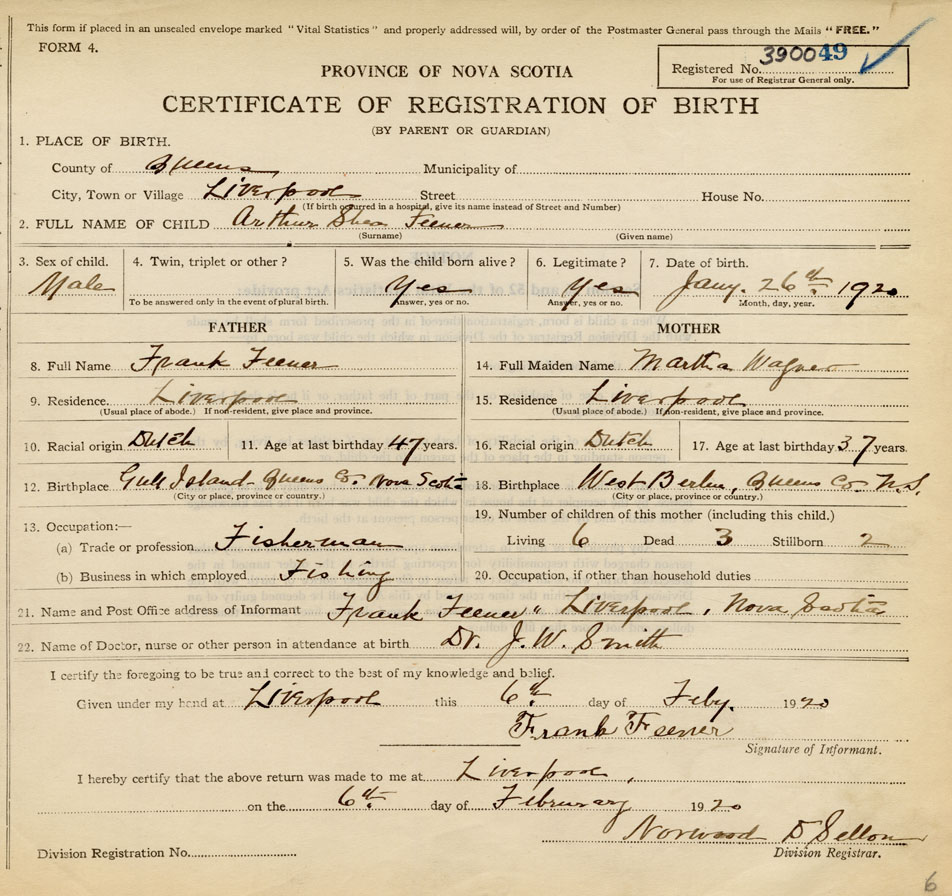 This form if placed in an unsealed envelope marked "Vital Statistics" and properly addressed will, by order of the Postmaster General pass through the Mails "FREE."
FORM 4.
Registered No. 390049
For use of Registrar General only.
PROVINCE OF NOVA SCOTIA
CERTIFICATE OF REGISTRATION OF BIRTH
(BY PARENT OR GUARDIAN)
1. PLACE OF BIRTH.
County of Queens Municipality of
City, Town or Village Liverpool Street House No.
(If birth occurred in a hospital, give its name instead of Street and Number)
2. FULL NAME OF CHILD Arthur Shea Feener
(Surname) (Given name)
3. Sex of child. 4. Twin, triplet or other? 5. Was the child born alive? 6. Legitimate? 7. Date of birth.
Male Yes Yes Jany. 26th 1920
To be answered only in the event of plural birth. Answer, yes or no. Answer, yes or no. Month, day, year.
FATHER MOTHER
8. Full Name Frank Feener 14. Full Maiden Name Martha Wagner
9. Residence. Liverpool 15. Residence Liverpool
(Usual place of abode.) If non-resident, give place and province. (Usual place of abode.) If non-resident, give place and province.
10. Racial origin Dutch 11. Age at last birthday 47 years. 16. Racial origin Dutch 17. Age at last birthday 37 years.
12. Birthplace Gull Island Queens Co. Nova Scotia 18. Birthplace West Berlin, Queens Co. N.S.
(City or place, province or country.) (City or place, province or country.)
13. Occupation:— 19. Number of children of this mother (including this child.)
(a) Trade or profession Fisherman Living 6 Dead 3 Stillborn 2
(b) Business in which employed Fishing 20. Occupation, if other than household duties
21. Name and Post Office address of Informant Frank Feener " Liverpool, Nova Scotia
22. Name of Doctor, nurse or other person in attendance at birth Dr. J. W. Smith
I certify the foregoing to be true and correct to the best of my knowledge and belief.
Given under my hand at Liverpool this 6th day of Feby. 1920
Frank Feener
Signature of Informant.
I hereby certify that the above return was made to me at Liverpool,
on the 6th day of February 1920
Norwood D Sellon
Division Registration No. Division Registrar.
6